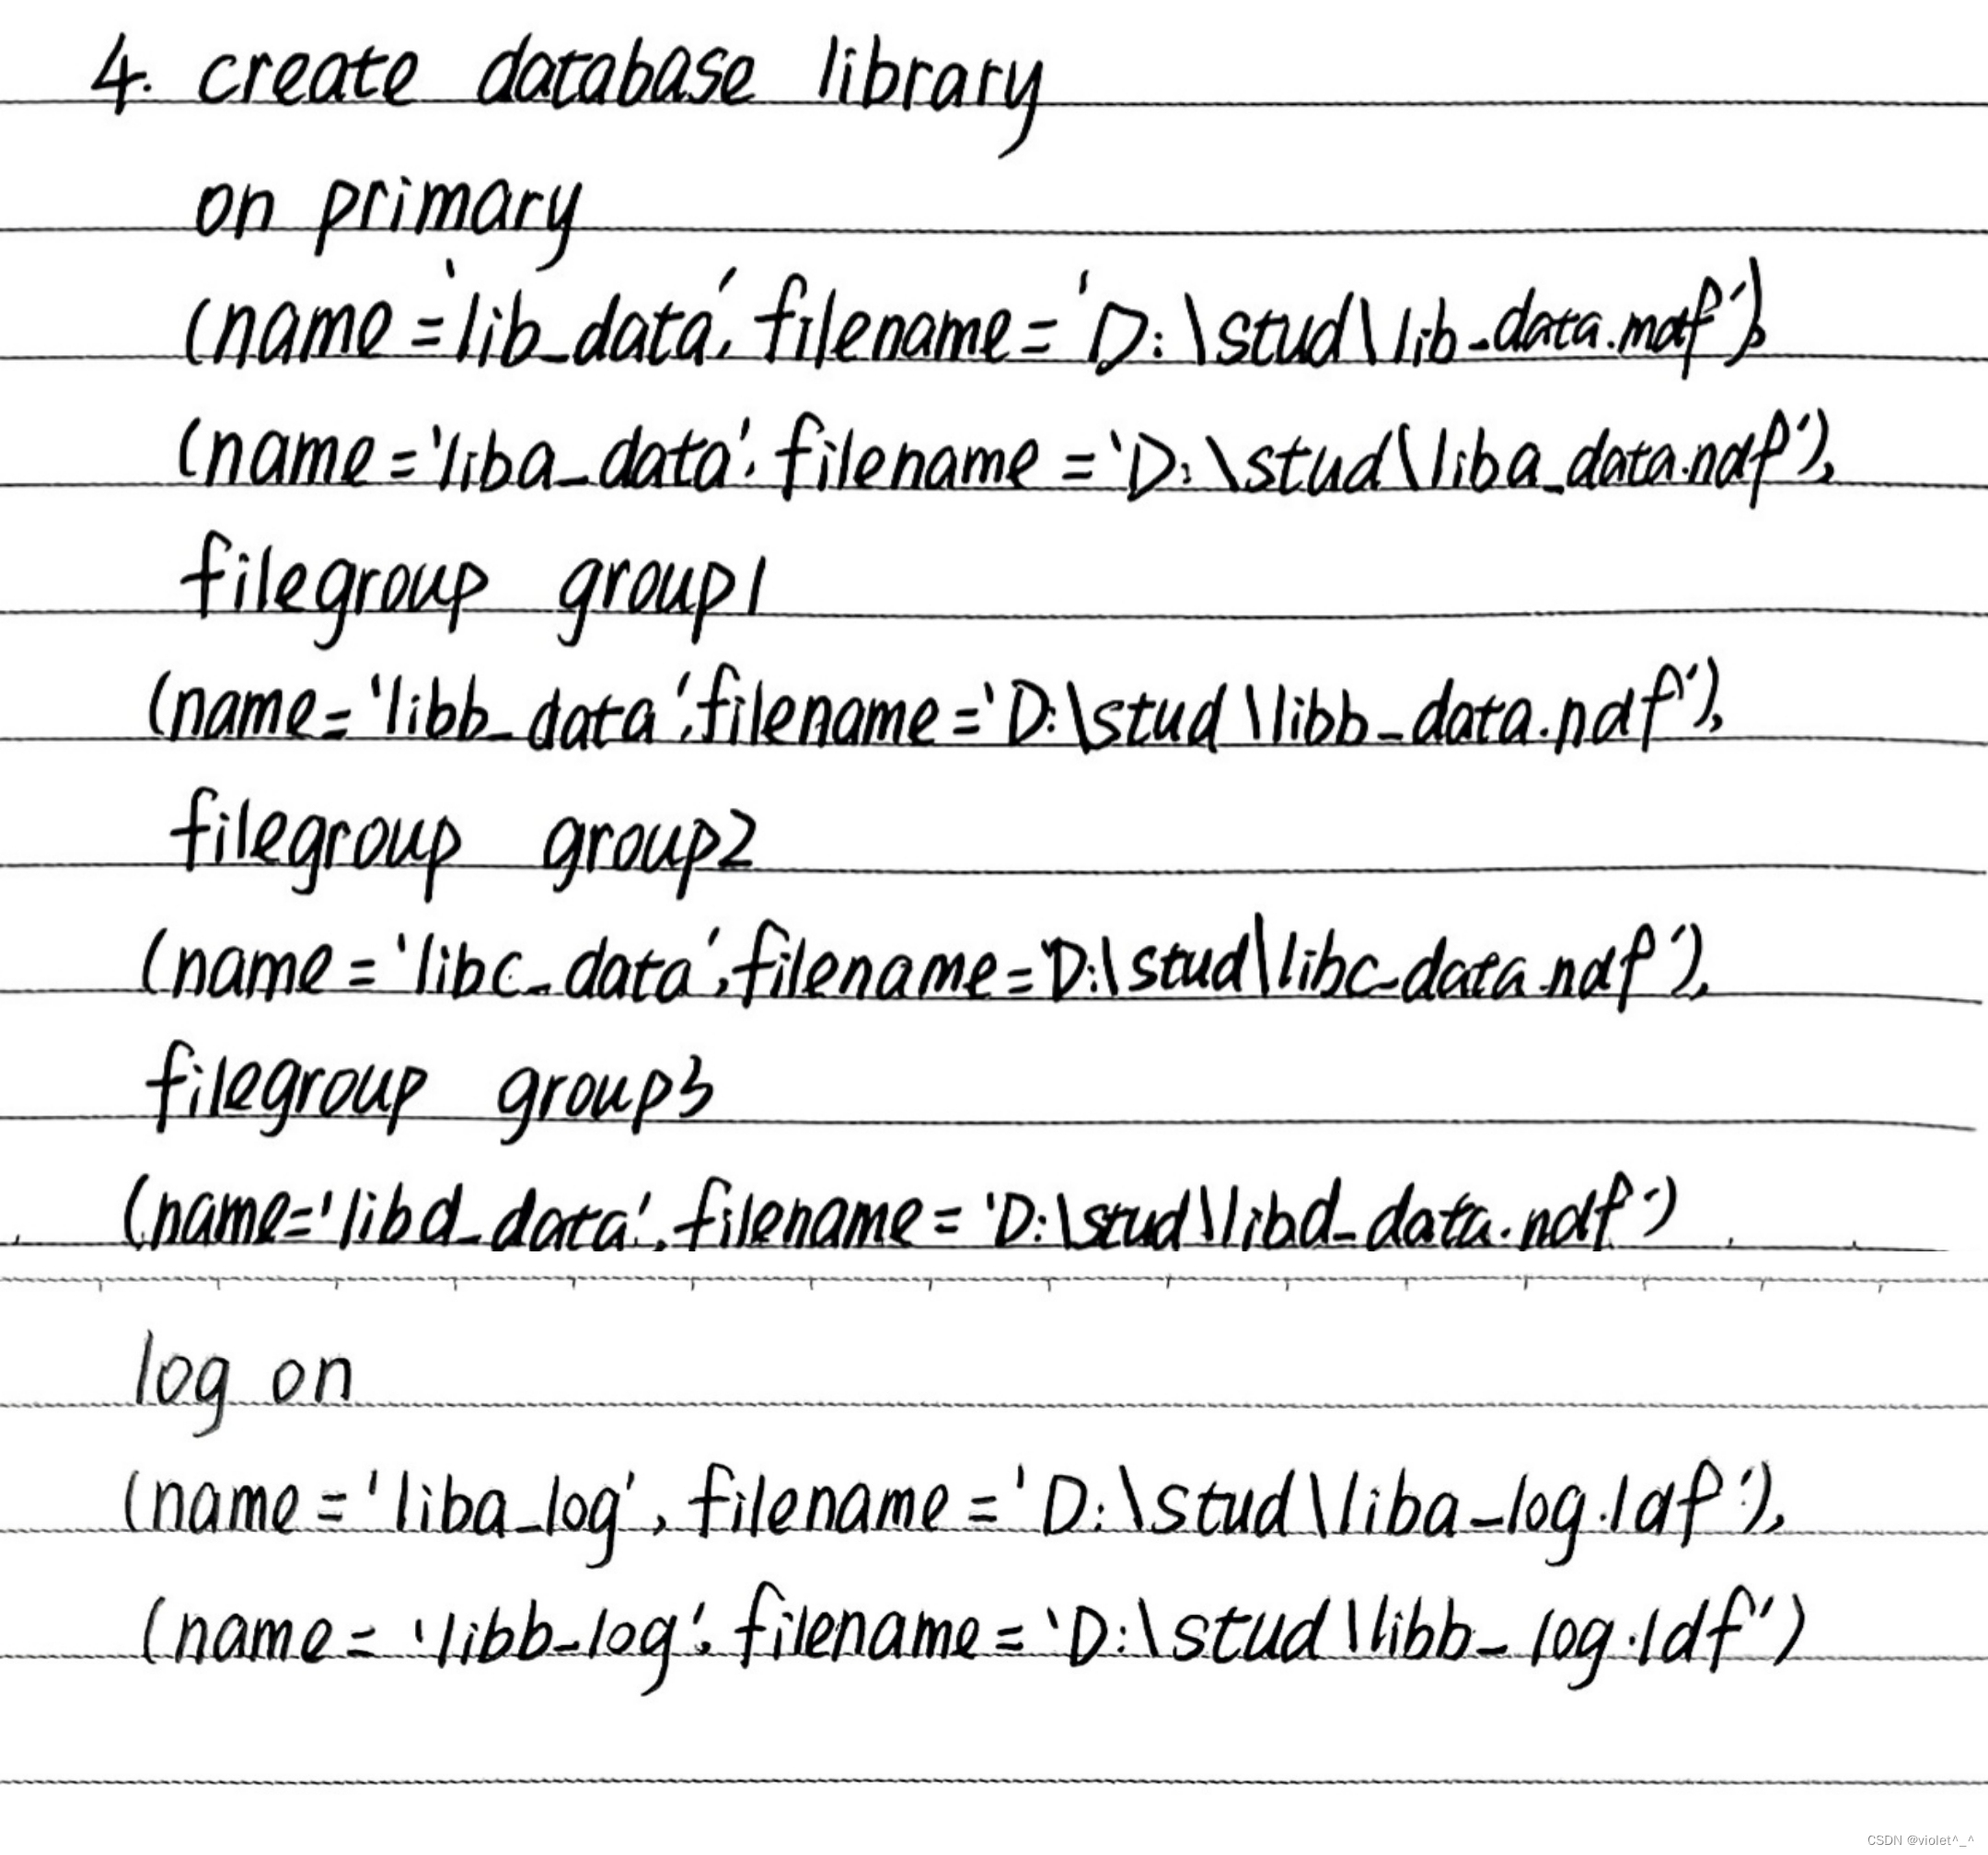 4. create database library
on primary
(name='lib_data', filename='D:\stud\lib_data.mdf'),
(name='liba_data', filename='D:\stud\liba_data.ndf'),
filegroup group1
(name='libb_data', filename='D:\stud\libb_data.ndf'),
filegroup group2
(name='libc_data', filename='D:\stud\libc_data.ndf'),
filegroup group3
(name='libd_data', filename='D:\stud\libd_data.ndf')
log on
(name='liba_log', filename='D:\stud\liba_log.ldf'),
(name='libb_log', filename='D:\stud\libb_log.ldf')
CSDN @violet^_^